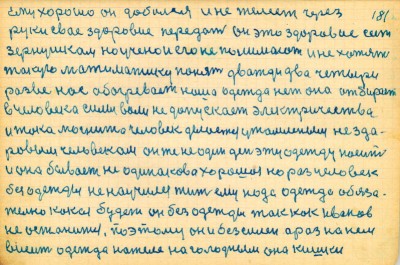 ему хорошо он добился и не желает через 181.
руки свае здоровие передат он это здоровие сеит
зернушкам но ученои его не понимают и не хотят
такую математику понят дважди два четыри
разве нас обогревает наша одежда нет она отбирает
в человека сили воли не допускает электричества
и тока мотнито человек делаеться умаленным не здо-
ровым человекам он те не один ден эту одежду носит
и она бывает не одинакова хорошои но раз человек
без одежды не научился жит ему нада одежда обяза-
телно какои будет он без одежды так как иванов
не останится, поэтому он и безсилен а раз на нем
висит одежда на теле на голодным она кишки